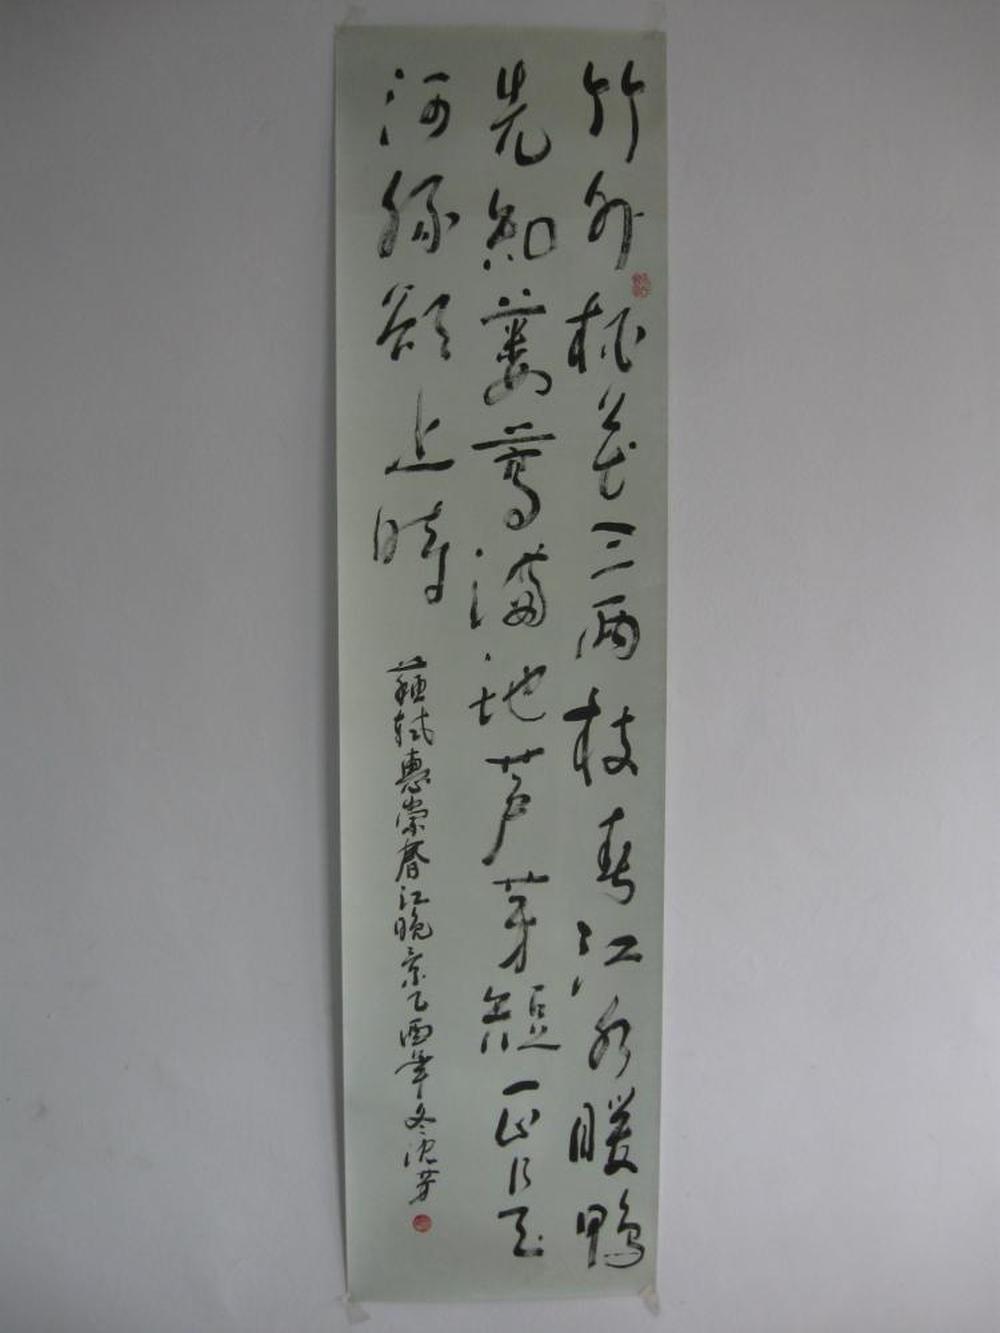 竹外桃花三兩枝春江水暖鴨
先知蔞蒿滿地芦芽短正是
河豚欲上時
蘇軾惠崇春江晚景乙酉年冬沈芳